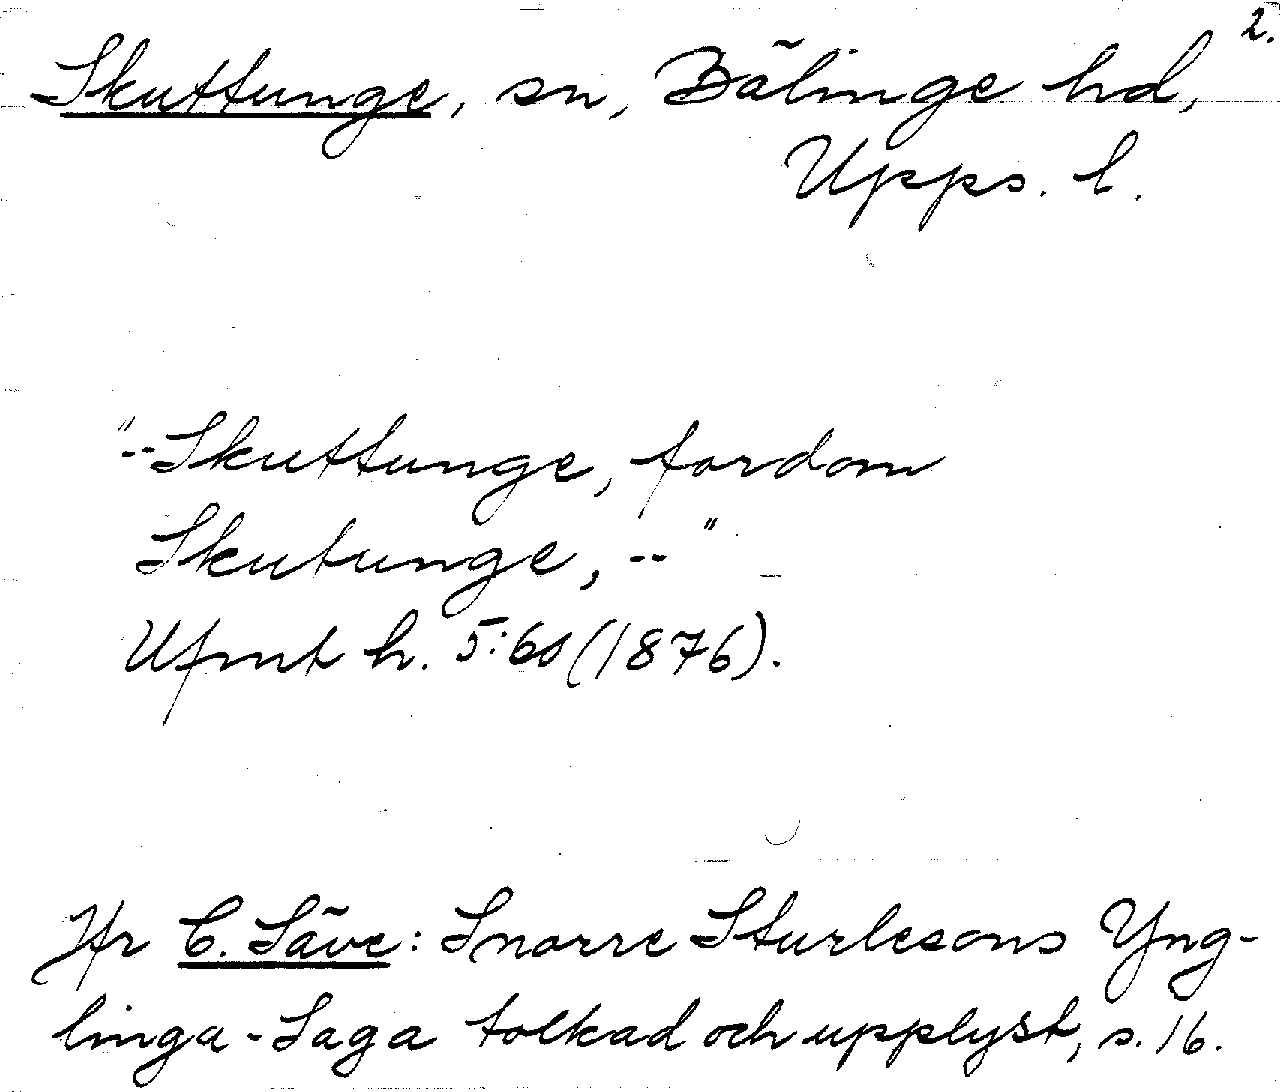 2.
Skuttunge, sn, Bälinge hd,
Upps. l.
"--Skuttunge, fordom
Skutunge, --"
Ufmt h. 5:60 (1876).
Jfr C. Säve: Snorre Sturlesons Yng-
linga-Saga tolkad och upplyst, s. 16.